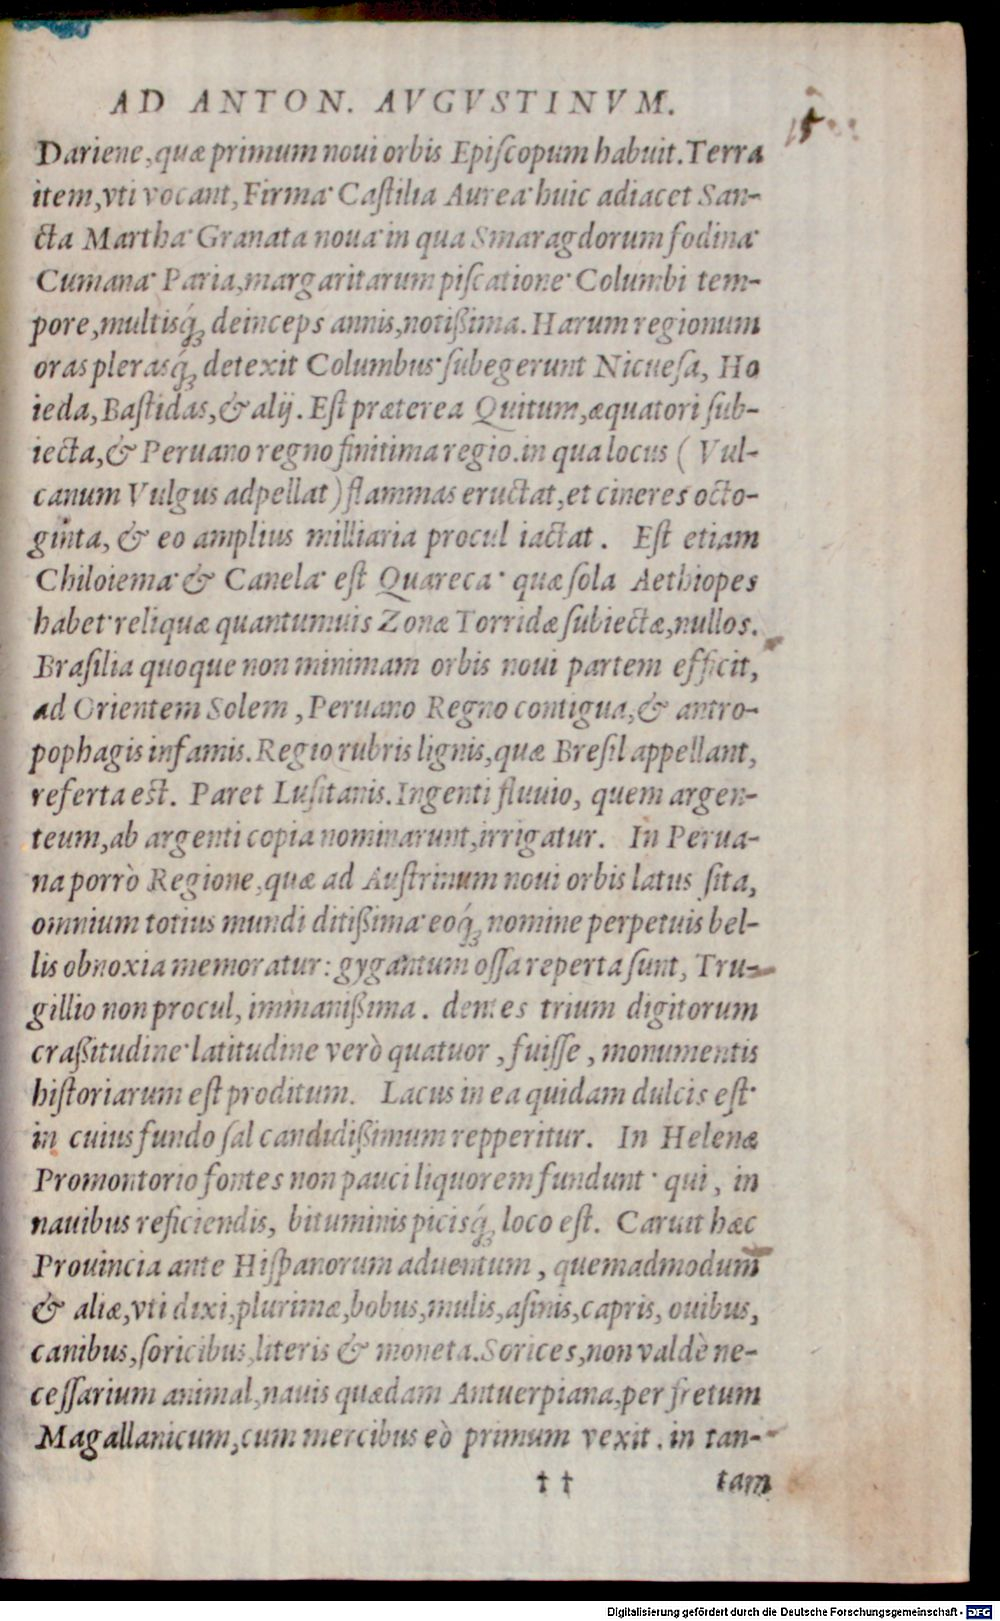 AD ANTON. AVGVSTINVM.
15
Dariene, quæ primum noui orbis Epiſcopum habuit. Terra
item, vti vocant, Firma· Caſtilia Aurea· huic adiacet San-
cta Martha· Granata noua· in qua Smaragdorum fodina·
Cumana· Paria, margaritarum piſcatione· Columbi tem-
pore, multisq́; deinceps annis, notißima. Harum regionum
oras plerasq́; detexit Columbus· ſubegerunt Nicueſa, Ho
ieda, Baſtidas, & alij. Eſt præterea Quitum, æquatori ſub-
iecta, & Peruano regno finitima regio. in qua locus ( Vul-
canum Vulgus adpellat) flammas eructat, et cineres octo-
ginta, & eo amplius milliaria procul iactat. Eſt etiam
Chiloiema· & Canela· eſt Quareca· quæ ſola Aethiopes
habet· reliquæ quantumuis Zonæ Torridæ ſubiectæ, nullos.
Braſilia quoque non minimam orbis noui partem efficit,
ad Orientem Solem, Peruano Regno contigua, & antro-
pophagis infamis. Regio rubris lignis, quæ Breſil appellant,
referta est. Paret Luſitanis. Ingenti fluuio, quem argen-
teum, ab argenti copia nominarunt, irrigatur. In Perua-
na porrò Regione, quæ ad Auſtrinum noui orbis latus ſita,
omnium totius mundi ditißima· eoq́; nomine perpetuis bel-
lis obnoxia memoratur: gygantum oſſa reperta ſunt, Tru-
gillio non procul, immanißima. dentes trium digitorum
craßitudine· latitudine verò quatuor, fuiſſe, monumentis
hiſtoriarum eſt proditum. Lacus in ea quidam dulcis eſt·
in cuius fundo ſal candidißimum repperitur. In Helenæ
Promontorio fontes non pauci liquorem fundunt· qui, in
nauibus reficiendis, bituminis picisq́; loco eſt. Caruit hæc
Prouincia ante Hiſpanorum aduentum, quemadmodum
& aliæ, vti dixi, plurimæ, bobus, mulis, aſinis, capris, ouibus,
canibus, ſoricibus, literis & moneta. Sorices, non valdè ne-
ceſſarium animal, nauis quædam Antuerpiana, per fretum
Magallanicum, cum mercibus eò primum vexit. in tan-
† † tam
Digitalisierung gefördert durch die Deutsche Forschungsgemeinschaft - DFG